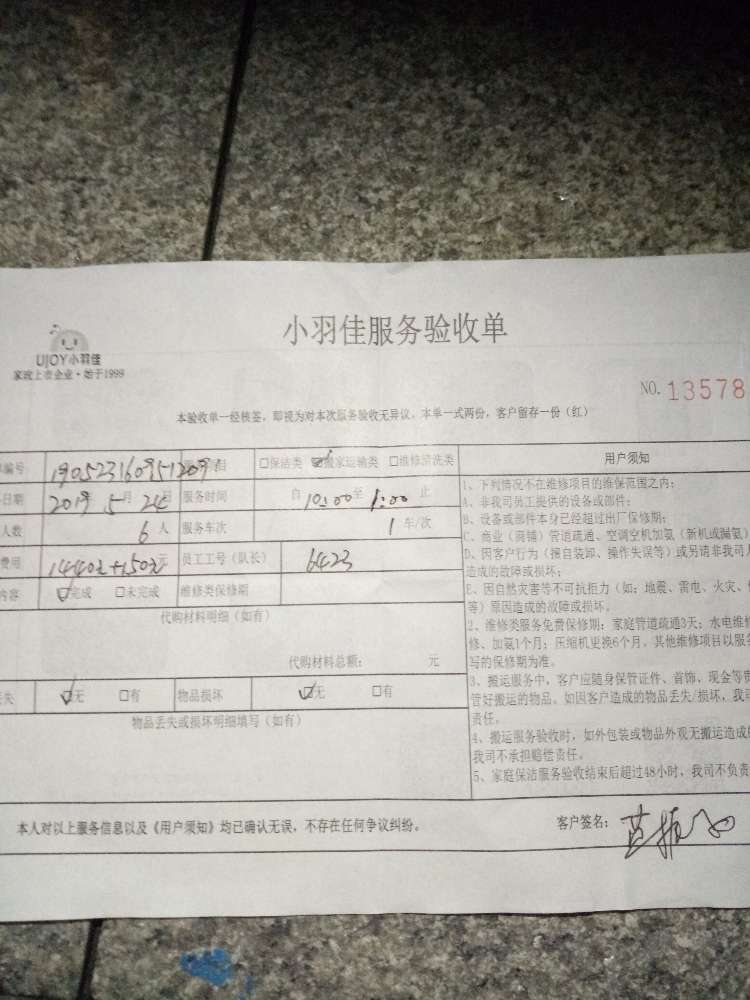 小羽佳服务验收单
UJOY小羽佳
家政上市企业·始于1999
NO. 13578
本验收单一经核签,即视为对本次服务验收无异议。本单一式两份,客户留存一份(红)
编号 □保洁类 ☑搬家运输类 □维修清洗类 用户须知
日期 2019 5月 24日 服务时间 自 10:00至 1:00 止
人数 6 人 服务车次 1 车/次
费用 1440元+150元 元 员工工号(队长) 6423
内容 ☑完成 □未完成 维修类保修期
代购材料明细(如有)
代购材料总额: 元
丢失 ☑无 □有 物品损坏 ☑无 □有
物品丢失或损坏明细填写(如有)
1、下列情况不在维修项目的维保范围之内:
A、非我司员工提供的设备或部件;
B、设备或部件本身已经超过出厂保修期;
C、商业(商铺)管道疏通、空调空机加氨(新机或漏氨)
D、因客户行为(擅自装卸、操作失误等)或另请非我司人
造成的故障或损坏;
E、因自然灾害等不可抗拒力(如:地震、雷电、火灾、
等)原因造成的故障或损坏。
2、维修类服务免费保修期:家庭管道疏通3天;水电维修
修、加氨1个月;压缩机更换6个月。其他维修项目以服务
写的保修期为准。
3、搬运服务中,客户应随身保管证件、首饰、现金等贵
管好搬运的物品。如因客户造成的物品丢失/损坏,我司
责任。
4、搬运服务验收时,如外包装或物品外观无搬运造成的
我司不承担赔偿责任。
5、家庭保洁服务验收结束后超过48小时,我司不负责
本人对以上服务信息以及《用户须知》均已确认无误,不存在任何争议纠纷。 客户签名: